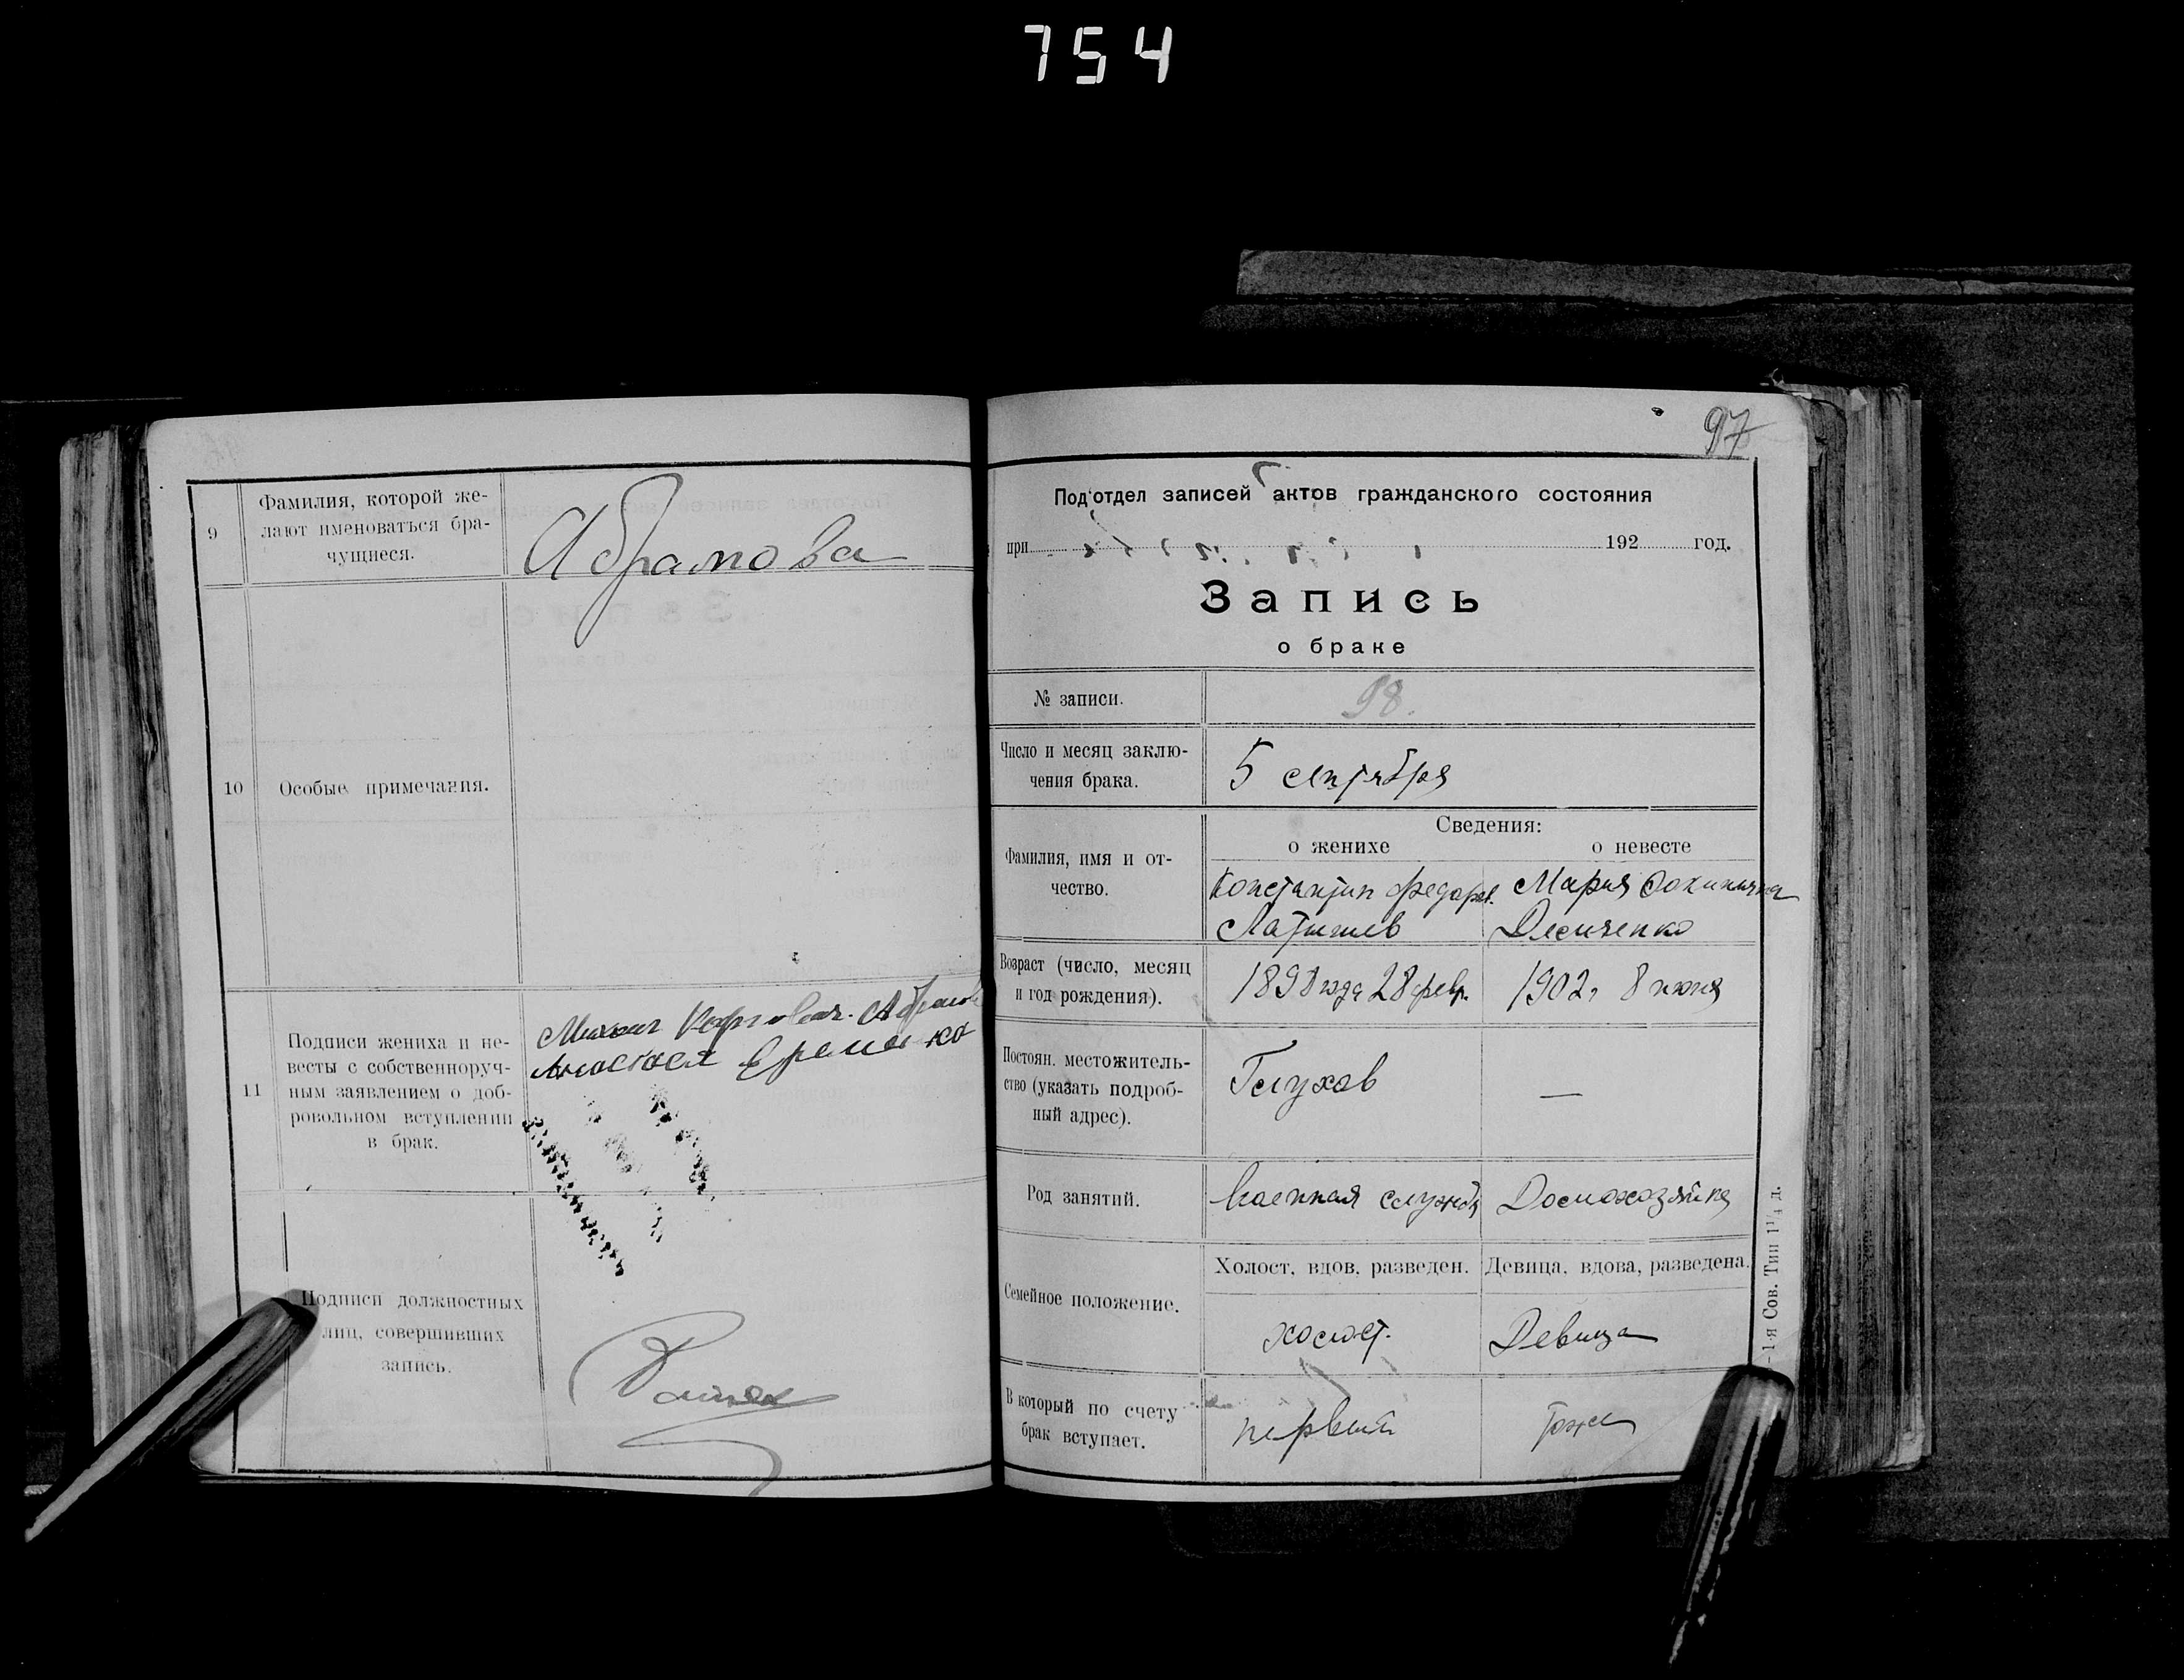 754
9
Фамилия, которой же-
лают именоваться бра-
чущиеся.
Абрамова
10
Особые примечания.
11
Подписи жениха и не-
весты с собственноруч-
ным заявлением о доб-
ровольном вступлении
в брак.
Михаил Абрамов
Анастасия Еременко
Подписи должностных
лиц, совершивших
запись.
97
Под'отдел записей актов гражданского состояния
при 192 год.
Запись
о браке
№ записи.
98.
Число и месяц заклю-
чения брака.
5 сентября
Сведения:
о женихе
о невесте
Фамилия, имя и от-
чество.
Константин Федоров.
Латышев
Мария
Демченко
Возраст (число, месяц
и год рождения).
1898 года 28 февр.
1902 г 8 июня
Постоян. местожитель-
ство (указать подроб-
ный адрес).
Глухов
—
Род занятий.
Военная служба
Домохозяйка
Семейное положение.
Холост, вдов, разведен.
Девица, вдова, разведена.
холост.
Девица
В который по счету
брак вступает.
первый
тоже
1-я Сов. Тип 1¼ д.